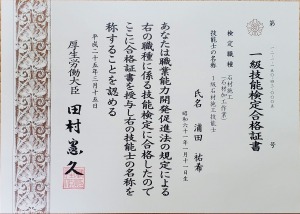 第　　　号
一級技能検定合格証書
検定職種
石材施工
（石材加工作業）
技能士の名称
一級石材施工技能士
氏名　浦田　祐希
昭和六十一年一月十一日生
あなたは職業能力開発促進法の規定による
右の職種に係る技能検定に合格したので
ここに合格証書を授与し右の技能士の名称を
称することを認める
平成二十五年三月十五日
厚生労働大臣　田村憲久